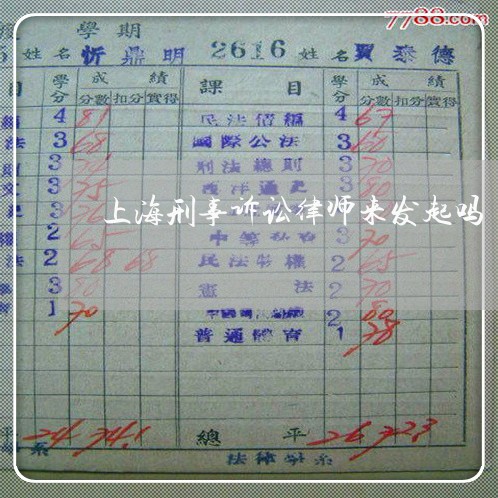 7788.com
學期
姓名 忻鼎明 2616 姓名 賈泰德
目 學分 成績 課目 學分 成績
分數 扣分 實得 分數 扣分 實得
4 81 民法債編 4 67
法 3 68 國際公法 3 60
3 刑法總則 3 70
3 75 西洋通史 3 80
上海刑事诉讼律师来发起吗
2 65 3 70
法 2 68 68 民法物權 2 65
3 80 憲法 2 70
1 70 2 80
普通體育 1 78
平 24 74.1 總平 26 72.3
系 法律學系